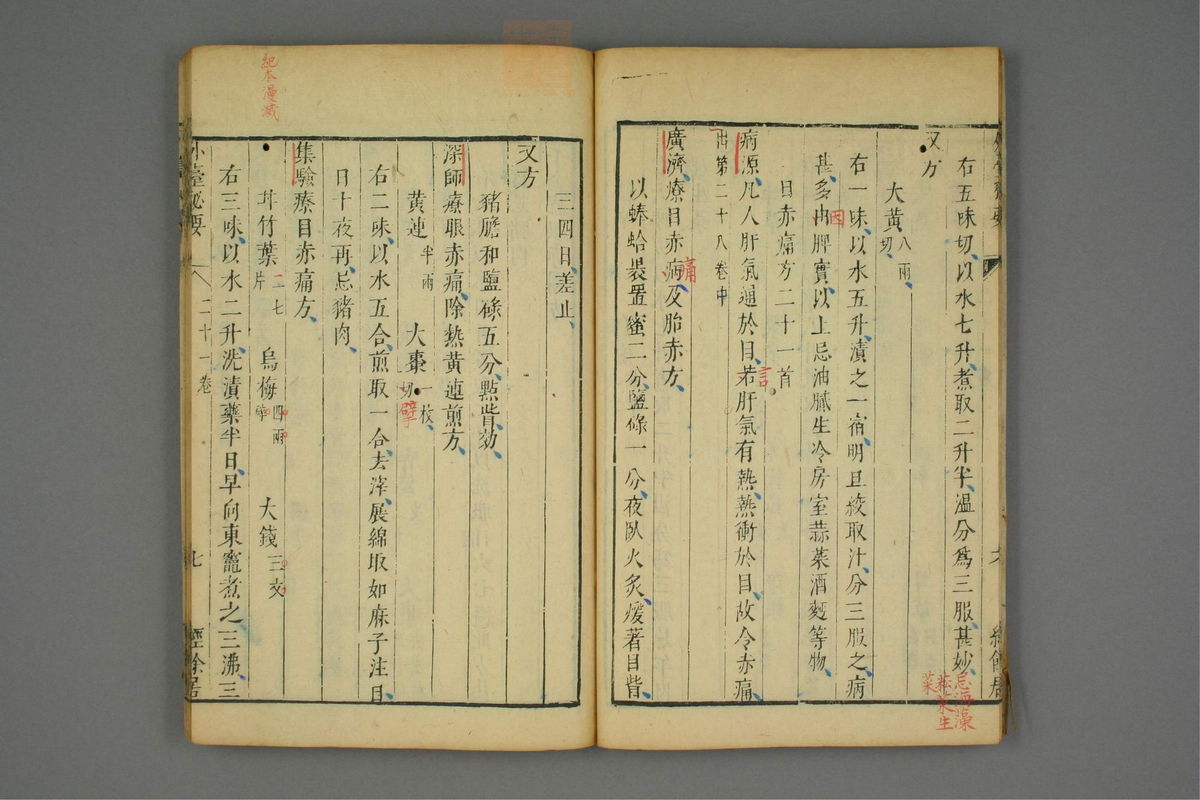 右五味切以水七升煮取二升半溫分爲三服甚妙
忌海藻
菘永生
菜
又方
大黃八兩切
右一味以水五升漬之一宿明旦絞取汁分三服之病
甚多由脾實以上忌油膩生冷房室蒜菜酒麫等物
因
目赤痛方二十一首
病源凡人肝氣通於目若肝氣有熱熱衝於目故令赤痛
言
出第二十八卷中
廣濟療目赤病及胎赤方
痛
以蜯蛤裝置蜜二分鹽綠一分夜臥火炙煖著目眥
三四日差止
又方
豬膽和鹽碌五分點眥効
深師療眼赤痛除熱黃連煎方
黃連半兩 大棗一枚切
擘
右二味以水五合煎取一合去滓展綿取如麻子注目
日十夜再忌豬肉
集驗療目赤痛方
竹葉二七片 烏梅四兩 大錢三文
右三味以水二升洗漬藥半日早向東竈煮之三沸三
外臺秘要 二十一卷 七 經餘居